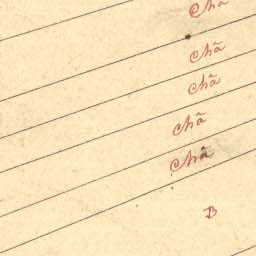 chã
chã
chã
chã
chã
B